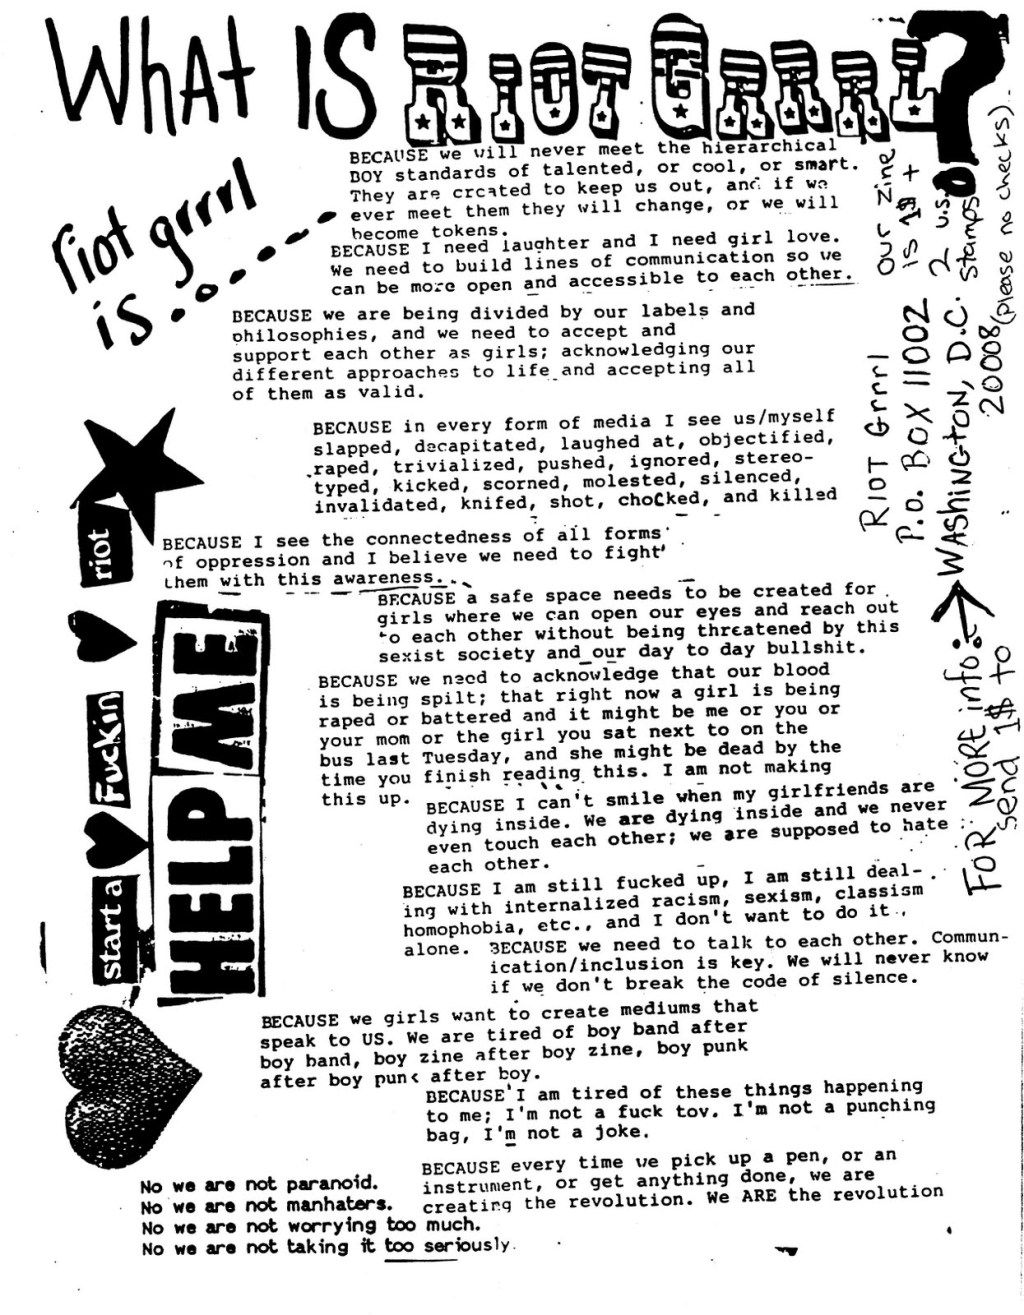 WhAt IS RIOT GRRRL?
riot grrrl
is.....
BECAUSE we will never meet the hierarchical
BOY standards of talented, or cool, or smart.
They are created to keep us out, and if we
ever meet them they will change, or we will
become tokens.
BECAUSE I need laughter and I need girl love.
We need to build lines of communication so we
can be more open and accessible to each other.
BECAUSE we are being divided by our labels and
philosophies, and we need to accept and
support each other as girls; acknowledging our
different approaches to life and accepting all
of them as valid.
BECAUSE in every form of media I see us/myself
slapped, decapitated, laughed at, objectified,
raped, trivialized, pushed, ignored, stereo-
typed, kicked, scorned, molested, silenced,
invalidated, knifed, shot, chocked, and killed
BECAUSE I see the connectedness of all forms
of oppression and I believe we need to fight
them with this awareness...
BECAUSE a safe space needs to be created for
girls where we can open our eyes and reach out
to each other without being threatened by this
sexist society and our day to day bullshit.
BECAUSE we need to acknowledge that our blood
is being spilt; that right now a girl is being
raped or battered and it might be me or you or
your mom or the girl you sat next to on the
bus last Tuesday, and she might be dead by the
time you finish reading this. I am not making
this up.
BECAUSE I can't smile when my girlfriends are
dying inside. We are dying inside and we never
even touch each other; we are supposed to hate
each other.
BECAUSE I am still fucked up, I am still deal-
ing with internalized racism, sexism, classism
homophobia, etc., and I don't want to do it
alone.
BECAUSE we need to talk to each other. Commun-
ication/inclusion is key. We will never know
if we don't break the code of silence.
BECAUSE we girls want to create mediums that
speak to US. We are tired of boy band after
boy band, boy zine after boy zine, boy punk
after boy punk after boy.
BECAUSE I am tired of these things happening
to me; I'm not a fuck toy. I'm not a punching
bag, I'm not a joke.
BECAUSE every time we pick up a pen, or an
instrument, or get anything done, we are
creating the revolution. We ARE the revolution
No we are not paranoid.
No we are not manhaters.
No we are not worrying too much.
No we are not taking it too seriously.
start a Fuckin riot
HELP ME
FOR MORE info:
send 1$ to
RIOT Grrrl
P.O. BOX 11002
WASHINGTON, D.C.
20008
our zine
is 1$ +
2 u.s.
stamps
(please no checks).